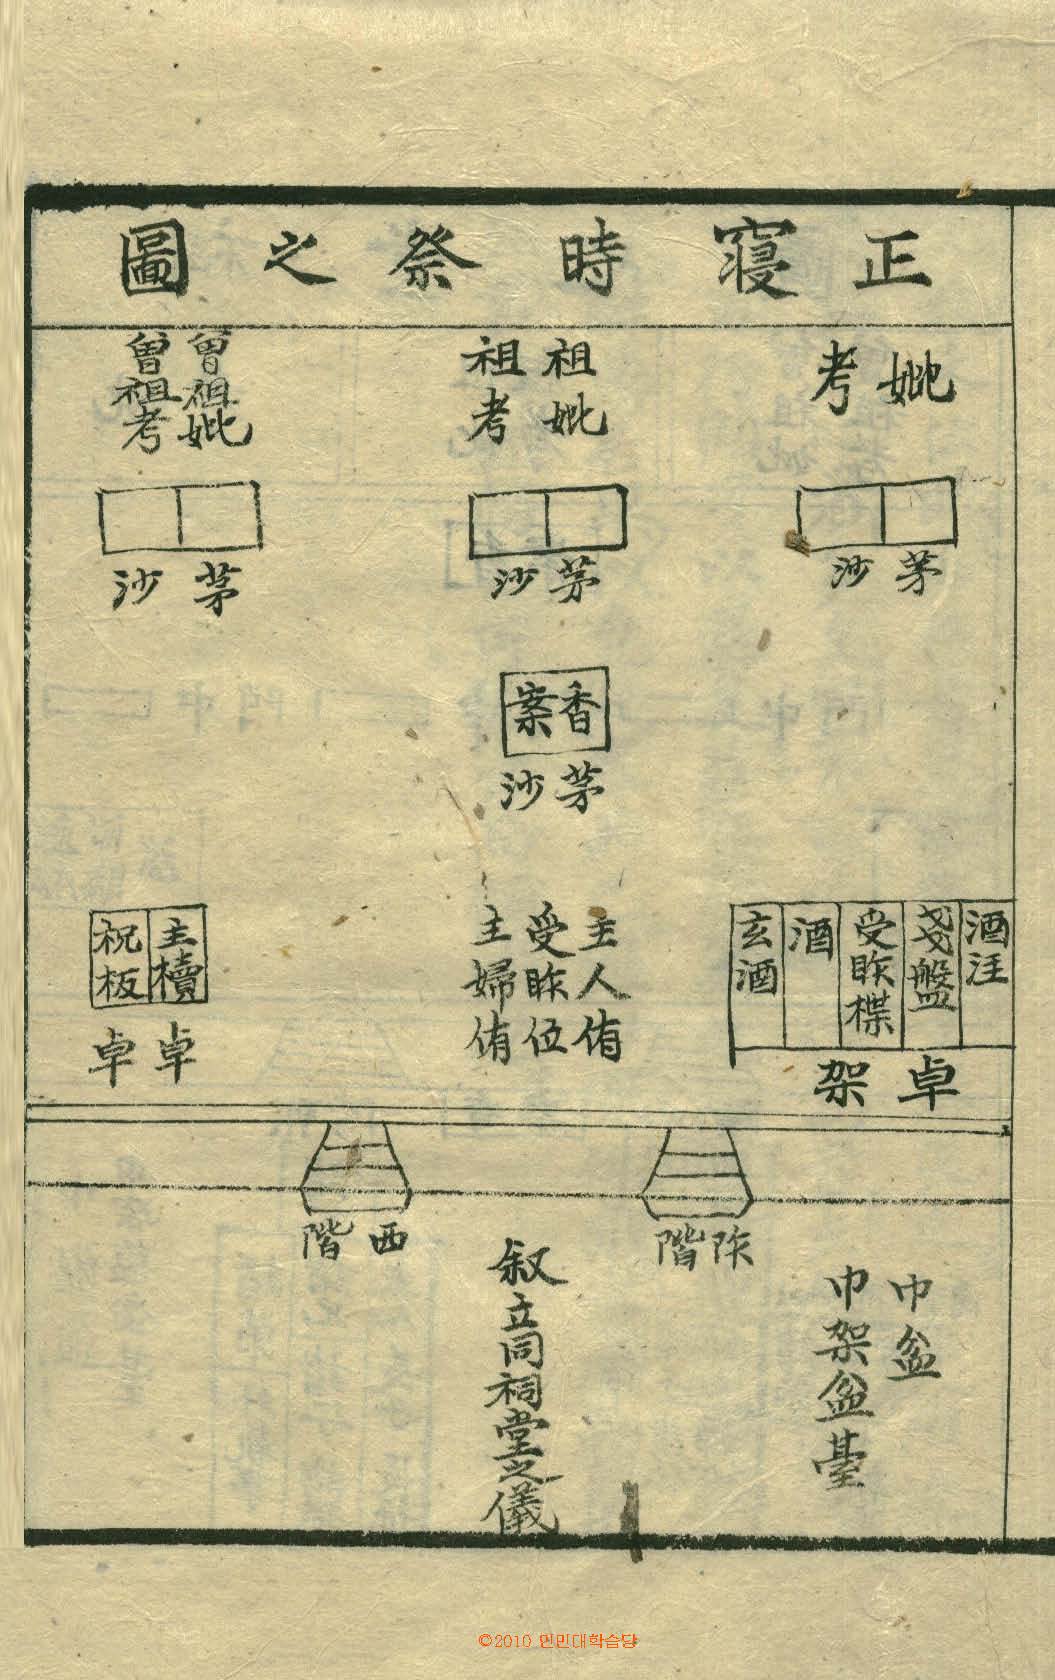 正寢時祭之圖
考妣
祖考 祖妣
曾祖考 曾祖妣
茅沙
茅沙
茅沙
香案
茅沙
酒注
盞盤
受胙楪
酒
玄酒
卓架
主人侑
受胙位
主婦侑
主櫝
祝板
卓
卓
阼階
西階
巾盆
巾架盆臺
叙立同祠堂之儀
©2010 인민대학습당